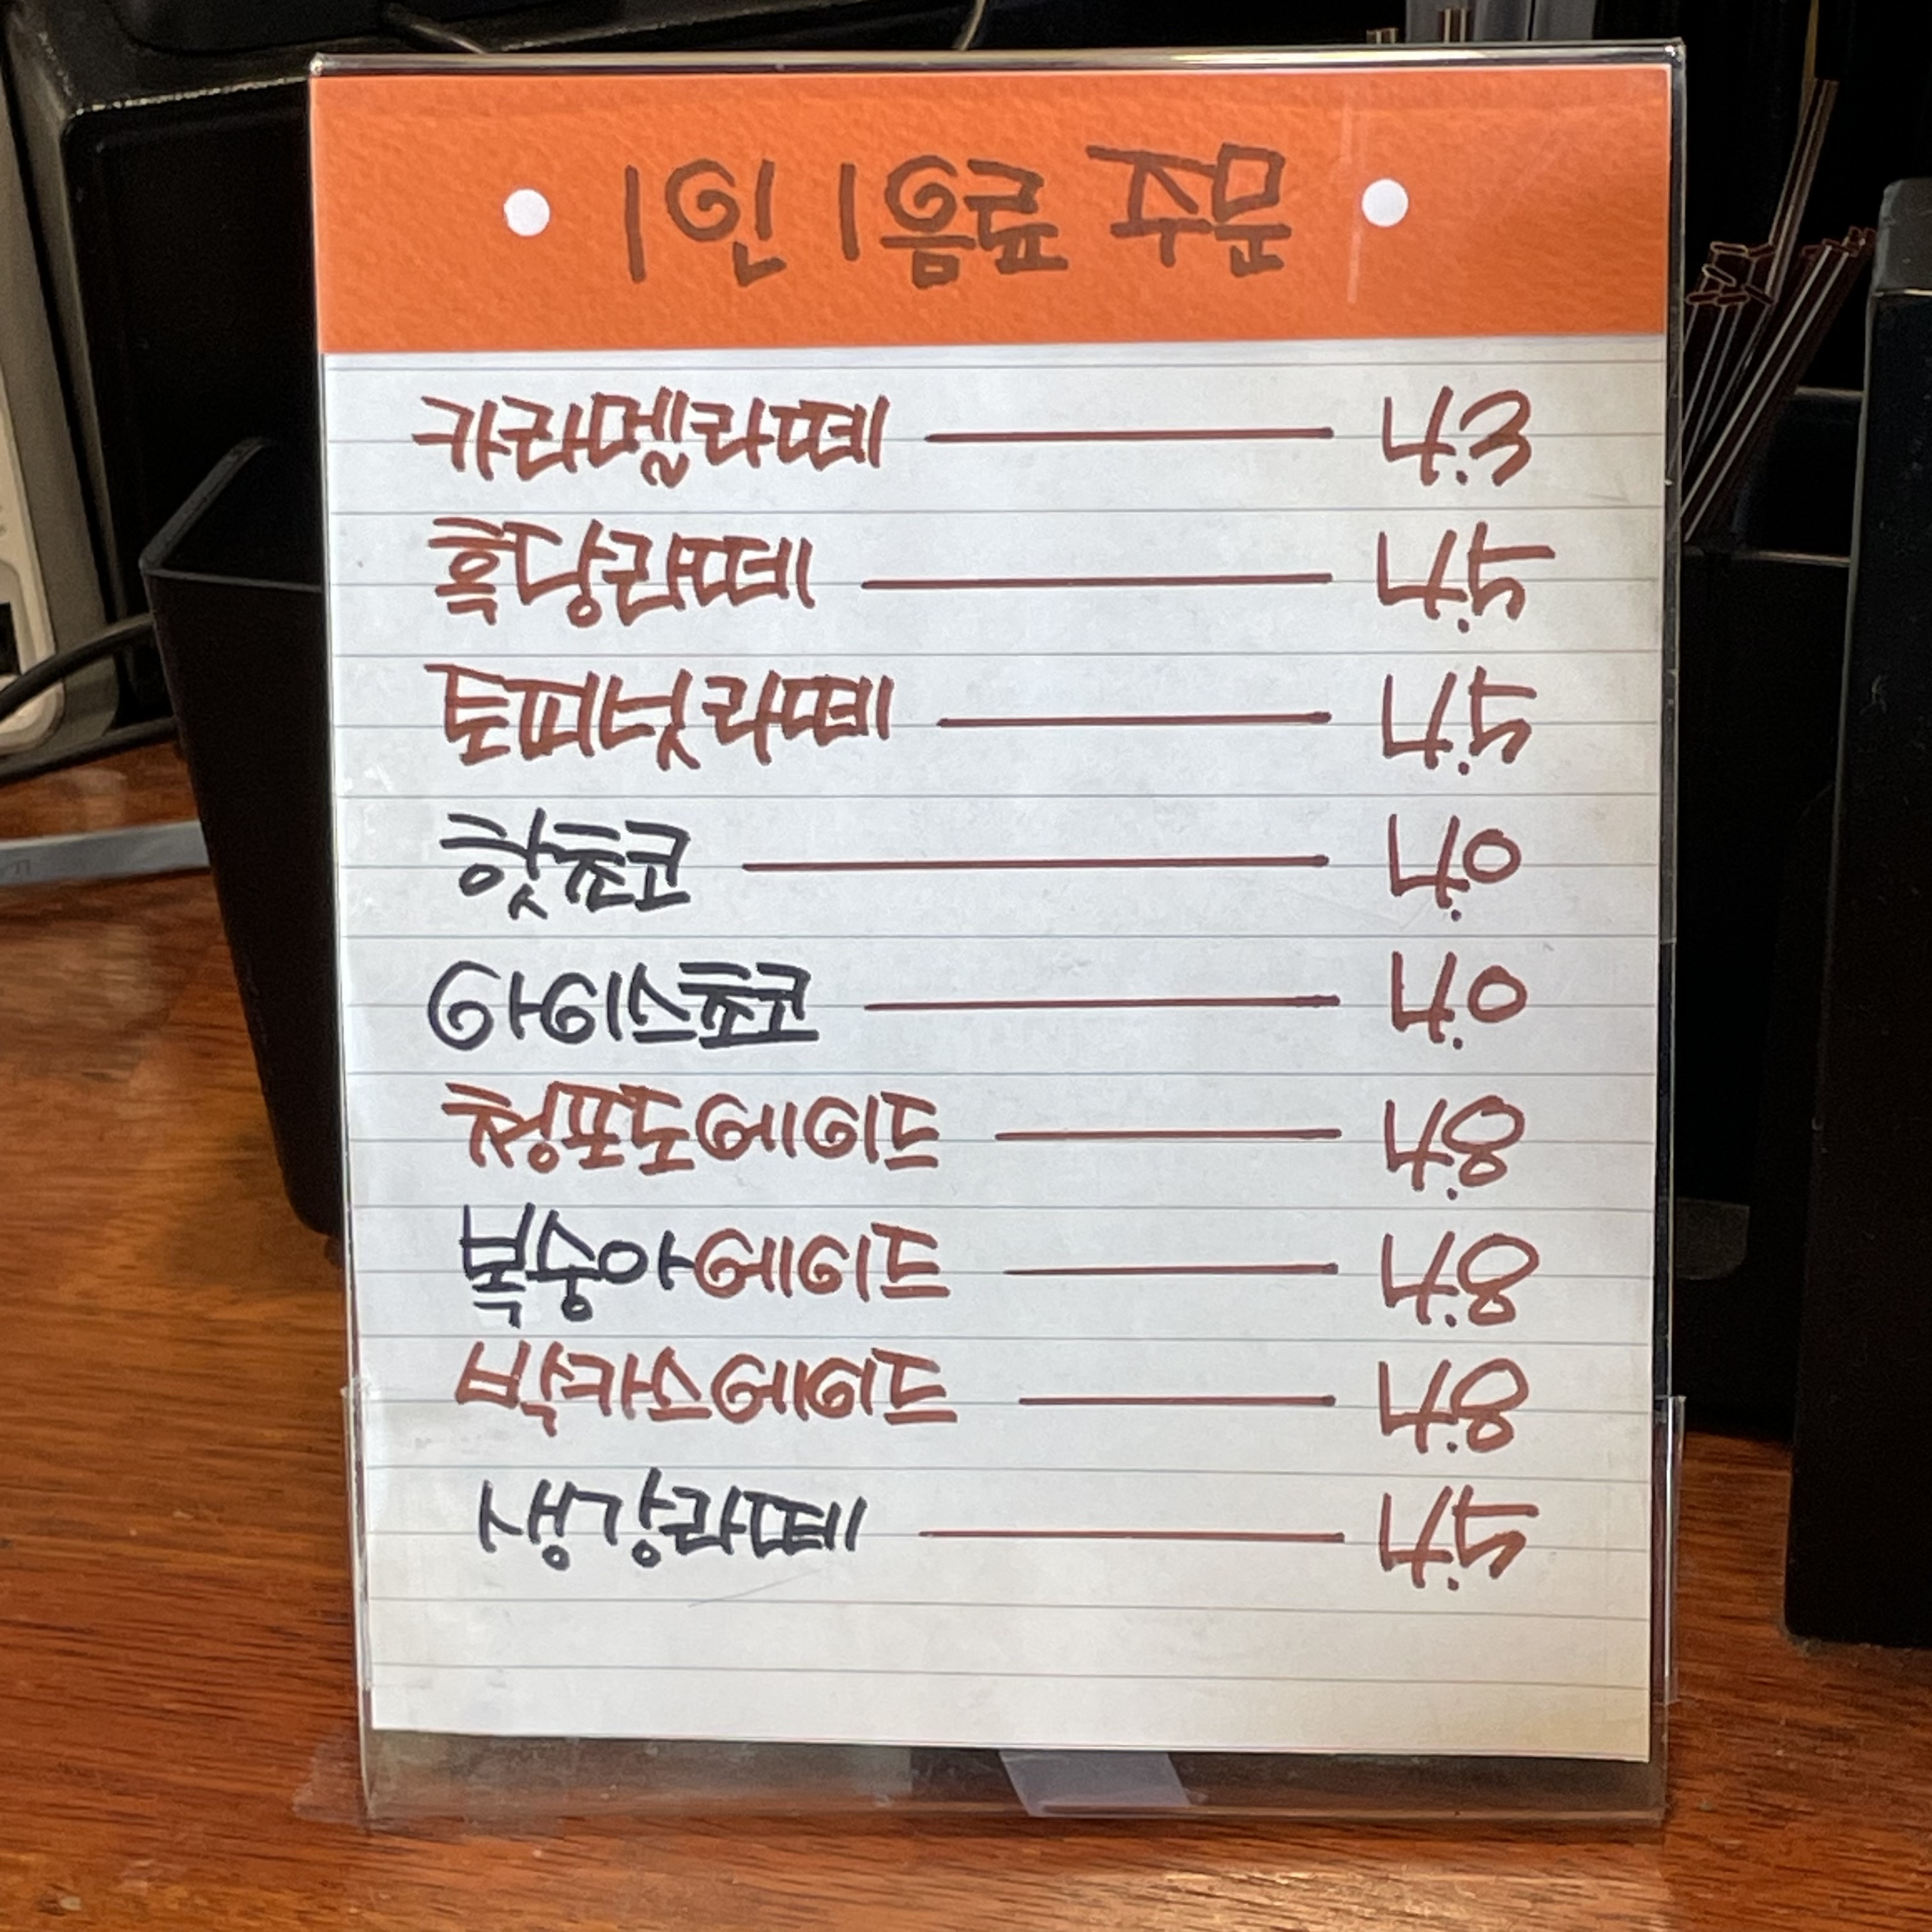 1인 1음료 주문
카라멜라떼 4.3
흑당라떼 4.5
토피넛라떼 4.5
핫쵸코 4.0
아이스쵸코 4.0
청포도에이드 4.8
복숭아에이드 4.8
박카스에이드 4.8
생강라떼 4.5